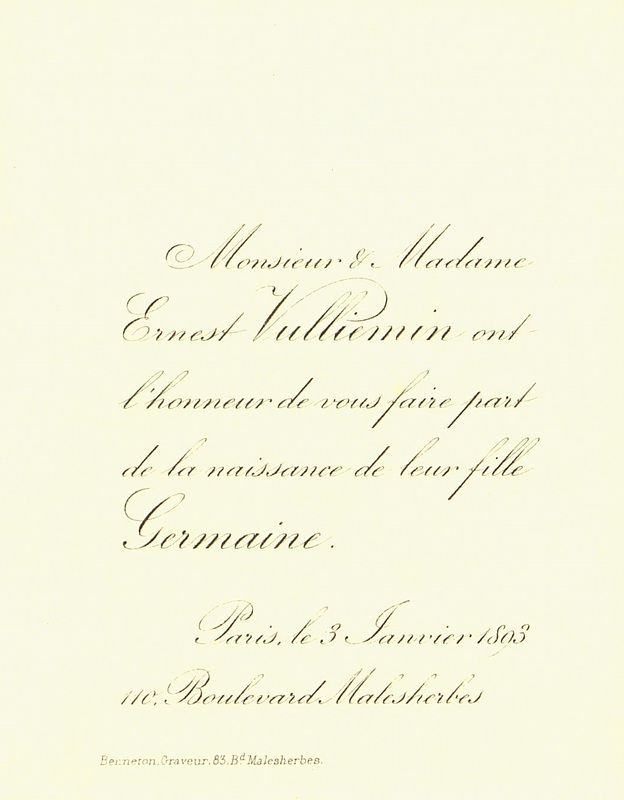 Monsieur & Madame
Ernest Vulliemin ont
l'honneur de vous faire part
de la naissance de leur fille
Germaine.
Paris, le 3 Janvier 1893
110, Boulevard Malesherbes
Benneton, Graveur, 83, Bd Malesherbes.